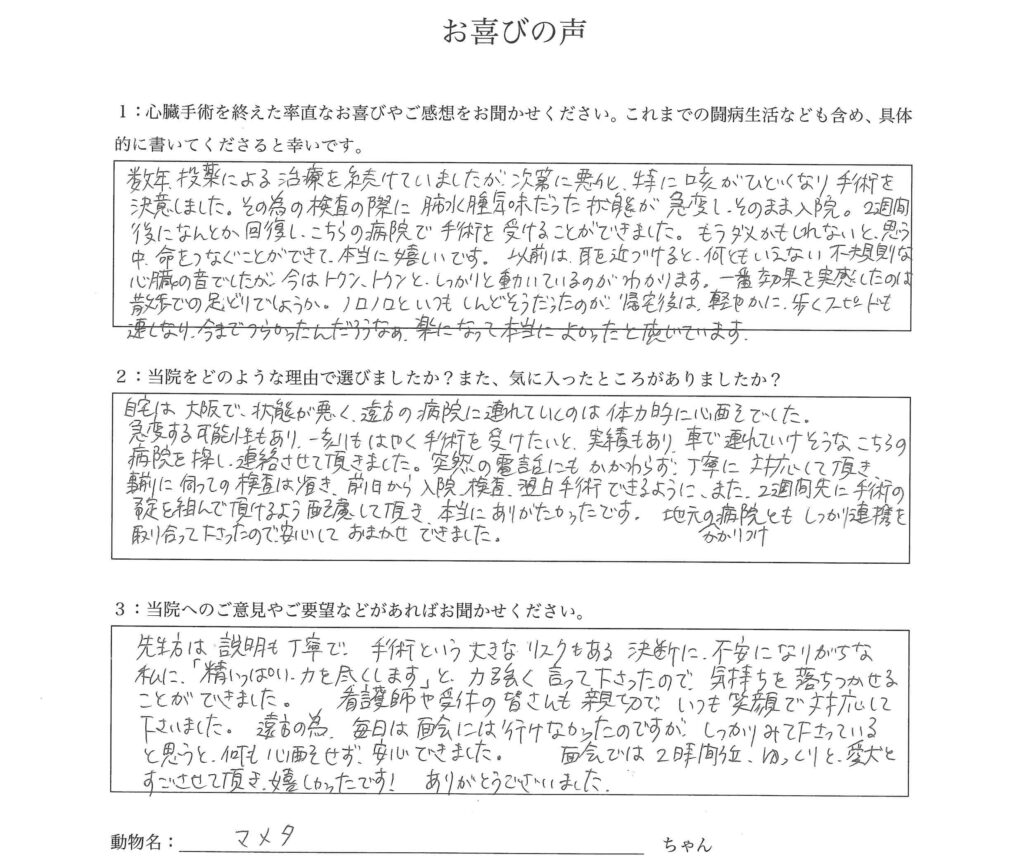 お喜びの声
1：心臓手術を終えた率直なお喜びやご感想をお聞かせください。これまでの闘病生活なども含め、具体
的に書いてくださると幸いです。
数年、投薬による治療を続けていましたが、次第に悪化し、特に咳がひどくなり手術を
決意しました。その為の検査の際に肺水腫気味だった状態が急変し、そのまま入院。2週間
後になんとか回復し、こちらの病院で手術を受けることができました。もうダメかもしれないと、思う
中、命をつなぐことができて、本当に嬉しいです。以前は、耳を近づけると、何ともいえない不規則な
心臓の音でしたが、今はトクン、トクンと、しっかりと動いているのがわかります。一番効果を実感したのは
散歩での足どりでしょうか。ノロノロといつもしんどそうだったのが、帰宅後は、軽やかに、歩くスピードも
速くなり、今までつらかったんだろうなぁ、楽になって本当によかったと感じています。
2：当院をどのような理由で選びましたか？また、気に入ったところがありましたか？
自宅は大阪で、状態が悪く、遠方の病院に連れていくのは体力的に心配でした。
急変する可能性もあり、一刻もはやく手術を受けたいと、実績もあり、車で連れていけそうな、こちらの
病院を探し、連絡させて頂きました。突然の電話にもかかわらず、丁寧に対応して頂き、
事前に伺っての検査は省き、前日から入院、検査、翌日手術できるように、また、2週間先に手術の
予定を組んで頂けるよう配慮して頂き、本当にありがたかったです。地元の病院ともしっかり連携を
かかりつけ
取り合って下さったので、安心しておまかせできました。
3：当院へのご意見やご要望などがあればお聞かせください。
先生方は、説明も丁寧で、手術という大きなリスクもある決断に、不安になりがちな
私に、「精いっぱい、力を尽くします」と、力強く言って下さったので、気持ちを落ちつかせる
ことができました。看護師や受付の皆さんも親切で、いつも笑顔で対応して
下さいました。遠方の為、毎日は面会には行けなかったのですが、しっかりみて下さっている
と思うと、何も心配せず、安心できました。面会では2時間近く、ゆっくりと、愛犬と
すごさせて頂き、嬉しかったです！ありがとうございました。
動物名：マメタ ちゃん